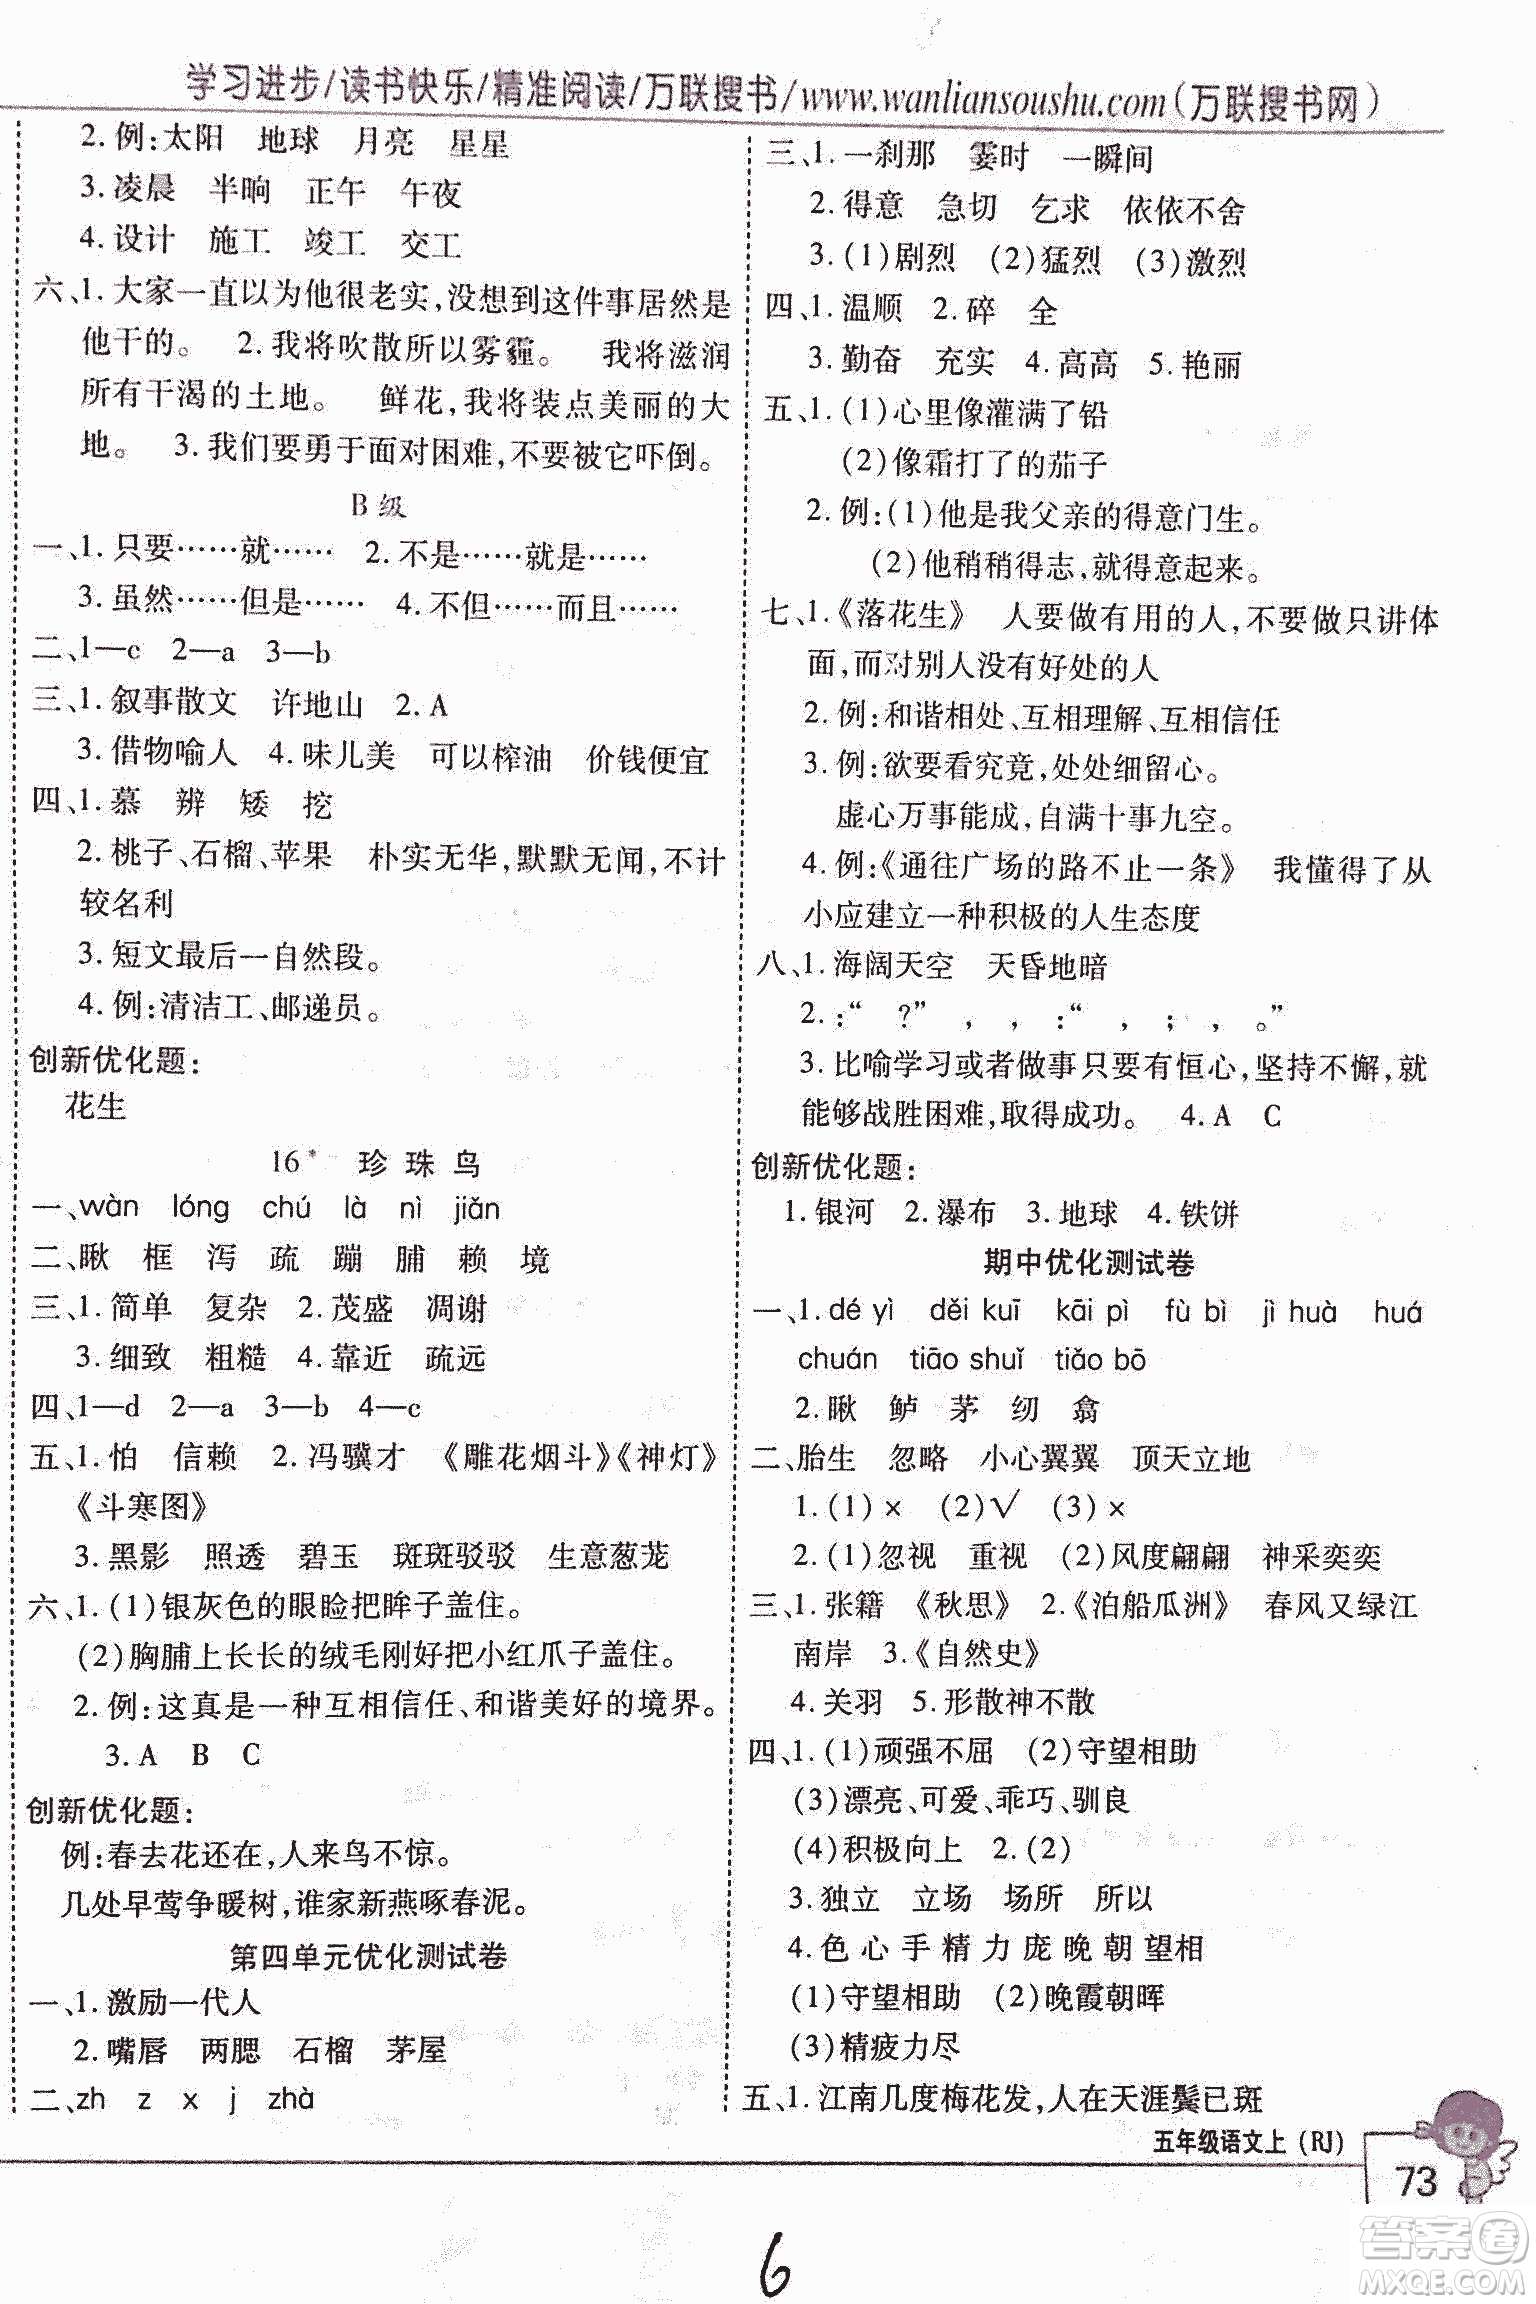 学习进步/读书快乐/精准阅读/万联搜书/www.wanliansoushu.com(万联搜书网)
2.例:太阳 地球 月亮 星星
3.凌晨 半晌 正午 午夜
4.设计 施工 竣工 交工
六、1.大家一直以为他很老实,没想到这件事居然是
他干的。 2.我将吹散所以雾霾。 我将滋润
所有干渴的土地。 鲜花,我将装点美丽的大
地。 3.我们要勇于面对困难,不要被它吓倒。
B级
一、1.只要……就…… 2.不是……就是……
3.虽然……但是…… 4.不但……而且……
二、1—c 2—a 3—b
三、1.叙事散文 许地山 2.A
3.借物喻人 4.味儿美 可以榨油 价钱便宜
四、1.慕 辨 矮 挖
2.桃子、石榴、苹果 朴实无华,默默无闻,不计
较名利
3.短文最后一自然段。
4.例:清洁工、邮递员。
创新优化题:
花生
16* 珍珠鸟
一、wàn lóng chú là nì jiǎn
二、瞅 框 泻 疏 蹦 脯 赖 境
三、1.简单 复杂 2.茂盛 凋谢
3.细致 粗糙 4.靠近 疏远
四、1—d 2—a 3—b 4—c
五、1.怕 信赖 2.冯骥才 《雕花烟斗》《神灯》
《斗寒图》
3.黑影 照透 碧玉 斑斑驳驳 生意葱茏
六、1.(1)银灰色的眼睑把眸子盖住。
(2)胸脯上长长的绒毛刚好把小红爪子盖住。
2.例:这真是一种互相信任、和谐美好的境界。
3.A B C
创新优化题:
例:春去花还在,人来鸟不惊。
几处早莺争暖树,谁家新燕啄春泥。
第四单元优化测试卷
一、1.激励一代人
2.嘴唇 两腮 石榴 茅屋
二、zh z x j zhà
三、1.一刹那 霎时 一瞬间
2.得意 急切 乞求 依依不舍
3.(1)剧烈 (2)猛烈 (3)激烈
四、1.温顺 2.碎 全
3.勤奋 充实 4.高高 5.艳丽
五、1.(1)心里像灌满了铅
(2)像霜打了的茄子
2.例:(1)他是我父亲的得意门生。
(2)他稍稍得志,就得意起来。
七、1.《落花生》 人要做有用的人,不要做只讲体
面,而对别人没有好处的人
2.例:和谐相处、互相理解、互相信任
3.例:欲要看究竟,处处细留心。
虚心万事能成,自满十事九空。
4.例:《通往广场的路不止一条》 我懂得了从
小应建立一种积极的人生态度
八、1.海阔天空 天昏地暗
2.:“ ?” , , :“ , ; , 。”
3.比喻学习或者做事只要有恒心,坚持不懈,就
能够战胜困难,取得成功。 4.A C
创新优化题:
1.银河 2.瀑布 3.地球 4.铁饼
期中优化测试卷
一、1.dé yì děi kuī kāi pì fù bì jì huà huá
chuán tiāo shuǐ tiǎo bō
2.瞅 鲈 茅 纫 翕
二、胎生 忽略 小心翼翼 顶天立地
1.(1)× (2)√ (3)×
2.(1)忽视 重视 (2)风度翩翩 神采奕奕
三、1.张籍 《秋思》 2.《泊船瓜洲》 春风又绿江
南岸 3.《自然史》
4.关羽 5.形散神不散
四、1.(1)顽强不屈 (2)守望相助
(3)漂亮、可爱、乖巧、驯良
(4)积极向上 2.(2)
3.独立 立场 场所 所以
4.色 心 手 精 力 庞 晚 朝 望 相
(1)守望相助 (2)晚霞朝晖
(3)精疲力尽
五、1.江南几度梅花发,人在天涯鬓已斑
五年级语文上(RJ)
73
6
答案卷
MXQE.COM